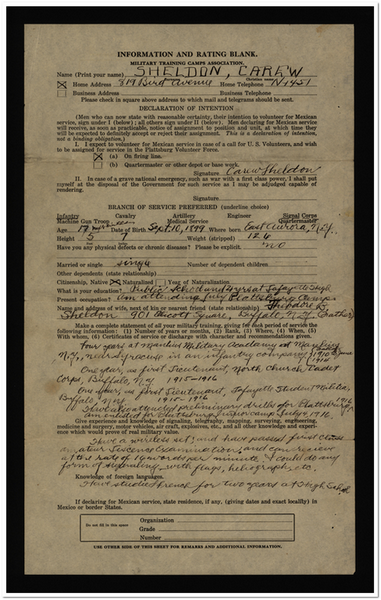 INFORMATION AND RATING BLANK.
MILITARY TRAINING CAMPS ASSOCIATION.
Name (Print your name) SHELDON, CAREW
Home Address 819 Bird Avenue Home Telephone N1451
Business Address Business Telephone
Please check in square above address to which mail and telegrams should be sent.
DECLARATION OF INTENTION
(Men who can now state with reasonable certainty, their intention to volunteer for Mexican
service, sign under I (below); all others sign under II (below). Men declaring for Mexican service
will receive, as soon as practicable, notice of assignment to position and unit, at which time they
will be expected to definitely accept or reject their assignment. This is a declaration of intention,
not a binding obligation.)
I. I expect to volunteer for Mexican service in case of a call for U. S. Volunteers, and wish
to be assigned for service in the Plattsburg Volunteer Force.
(a) On firing line.
(b) Quartermaster or other depot or base work.
Signature Carew Sheldon
II. In case of a grave national emergency, such as war with a first class power, I shall put
myself at the disposal of the Government for such service as I may be adjudged capable of
rendering.
Signature
BRANCH OF SERVICE PREFERRED (underline choice)
Infantry Cavalry Artillery Engineer Signal Corps
Machine Gun Troop Medical Service Quartermaster
Age Date of Birth Sept. 10, 1899 Where born East Aurora, N.Y.
Height 5 Weight (stripped) 126
Have you any physical defects or chronic diseases? Please be explicit. no
Married or single single Number of dependent children
Other dependents (state relationship)
Citizenship, Native Naturalized Year of Naturalization
What is your education? Public School and at Lafayette High
Present occupation? Am attending July Plattsburg Camp
Name and address, with state, of next of kin or nearest friend (state relationship) Theodore
Sheldon Square, Buffalo, N.Y. Father
Make a complete statement of all your military training, giving for each period of service the
following information: (1) Number of years or months, (2) Rank, (3) When, (4) Where, (5) With
whom, (6) Certificates of service or discharge with character and recommendations given.
Four years at Manlius Military Academy at Manlius
N.Y., in an infantry company
One year, as first Lieutenant, North Church, Cadet
Corps, Buffalo, N.Y. 1915-1916
One year, as first Lieutenant, Lafayette Student Militia,
Buffalo, N.Y. 1915-1916
I have also attended preliminary drills for Plattsburg
am enlisted for Plattsburg camp July 1916.
Give experience and knowledge of signaling, telegraphy, mapping, surveying, engineering,
medicine, motor vehicles, aircraft, explosives, etc., and all other knowledge and experience
which would prove of real military value.
I have a wireless set, and have passed first class
amateur license examination, and can receive
at the rate of words per minute. I could do any
form of signaling with flags, heliograph, etc.
Knowledge of foreign languages.
I have studied French for two years at High School
If declaring for Mexican service, state residence, if any, (giving dates and exact locality) in
Mexico or border States.
Do not fill in this space
Organization
Grade
Number
USE OTHER SIDE OF THIS SHEET FOR REMARKS AND ADDITIONAL INFORMATION.